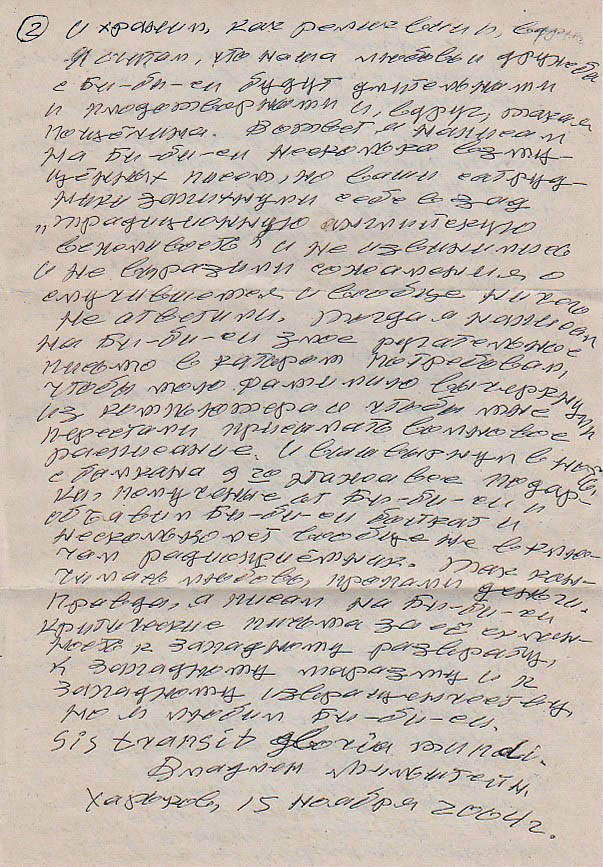 ② и хранил, как реликвии,
Я считал, что наша любовь и дружба
с Би-би-си будут длительными
и плодотворными и, вдруг, такая
пощёчина. В ответ я написал
на Би-би-си несколько возму-
щённых писем, но ваши сатруд-
ники запихнули себе в зад
"традиционную английскую
вежливость" и не извинились
и не выразили сожаления о
случившемся и вообще ничего
не ответили. Тогда я написал
на Би-би-си злое ругательное
письмо в котором потребовал,
чтобы мою фамилию вычеркнули
из компьютера и чтобы мне
перестали присылать волновое
расписание. И вышвырнул в
с балкона 9го этажа все подар-
ки, полученые от Би-би-си и
объявил Би-би-си бойкот и
несколько лет вообще не вклю-
чал радиоприёмник. Так кон-
чилась любовь, пропали деньги.
Правда, я писал на Би-би-си
критические письма за её склон-
ность к западному разврату,
к западному маразму и к
западному извращенчеству,
но я любил Би-би-си.
Sis transit gloria mundi.
Владлен Мильштейн.
Харьков, 15 ноября 2004г.